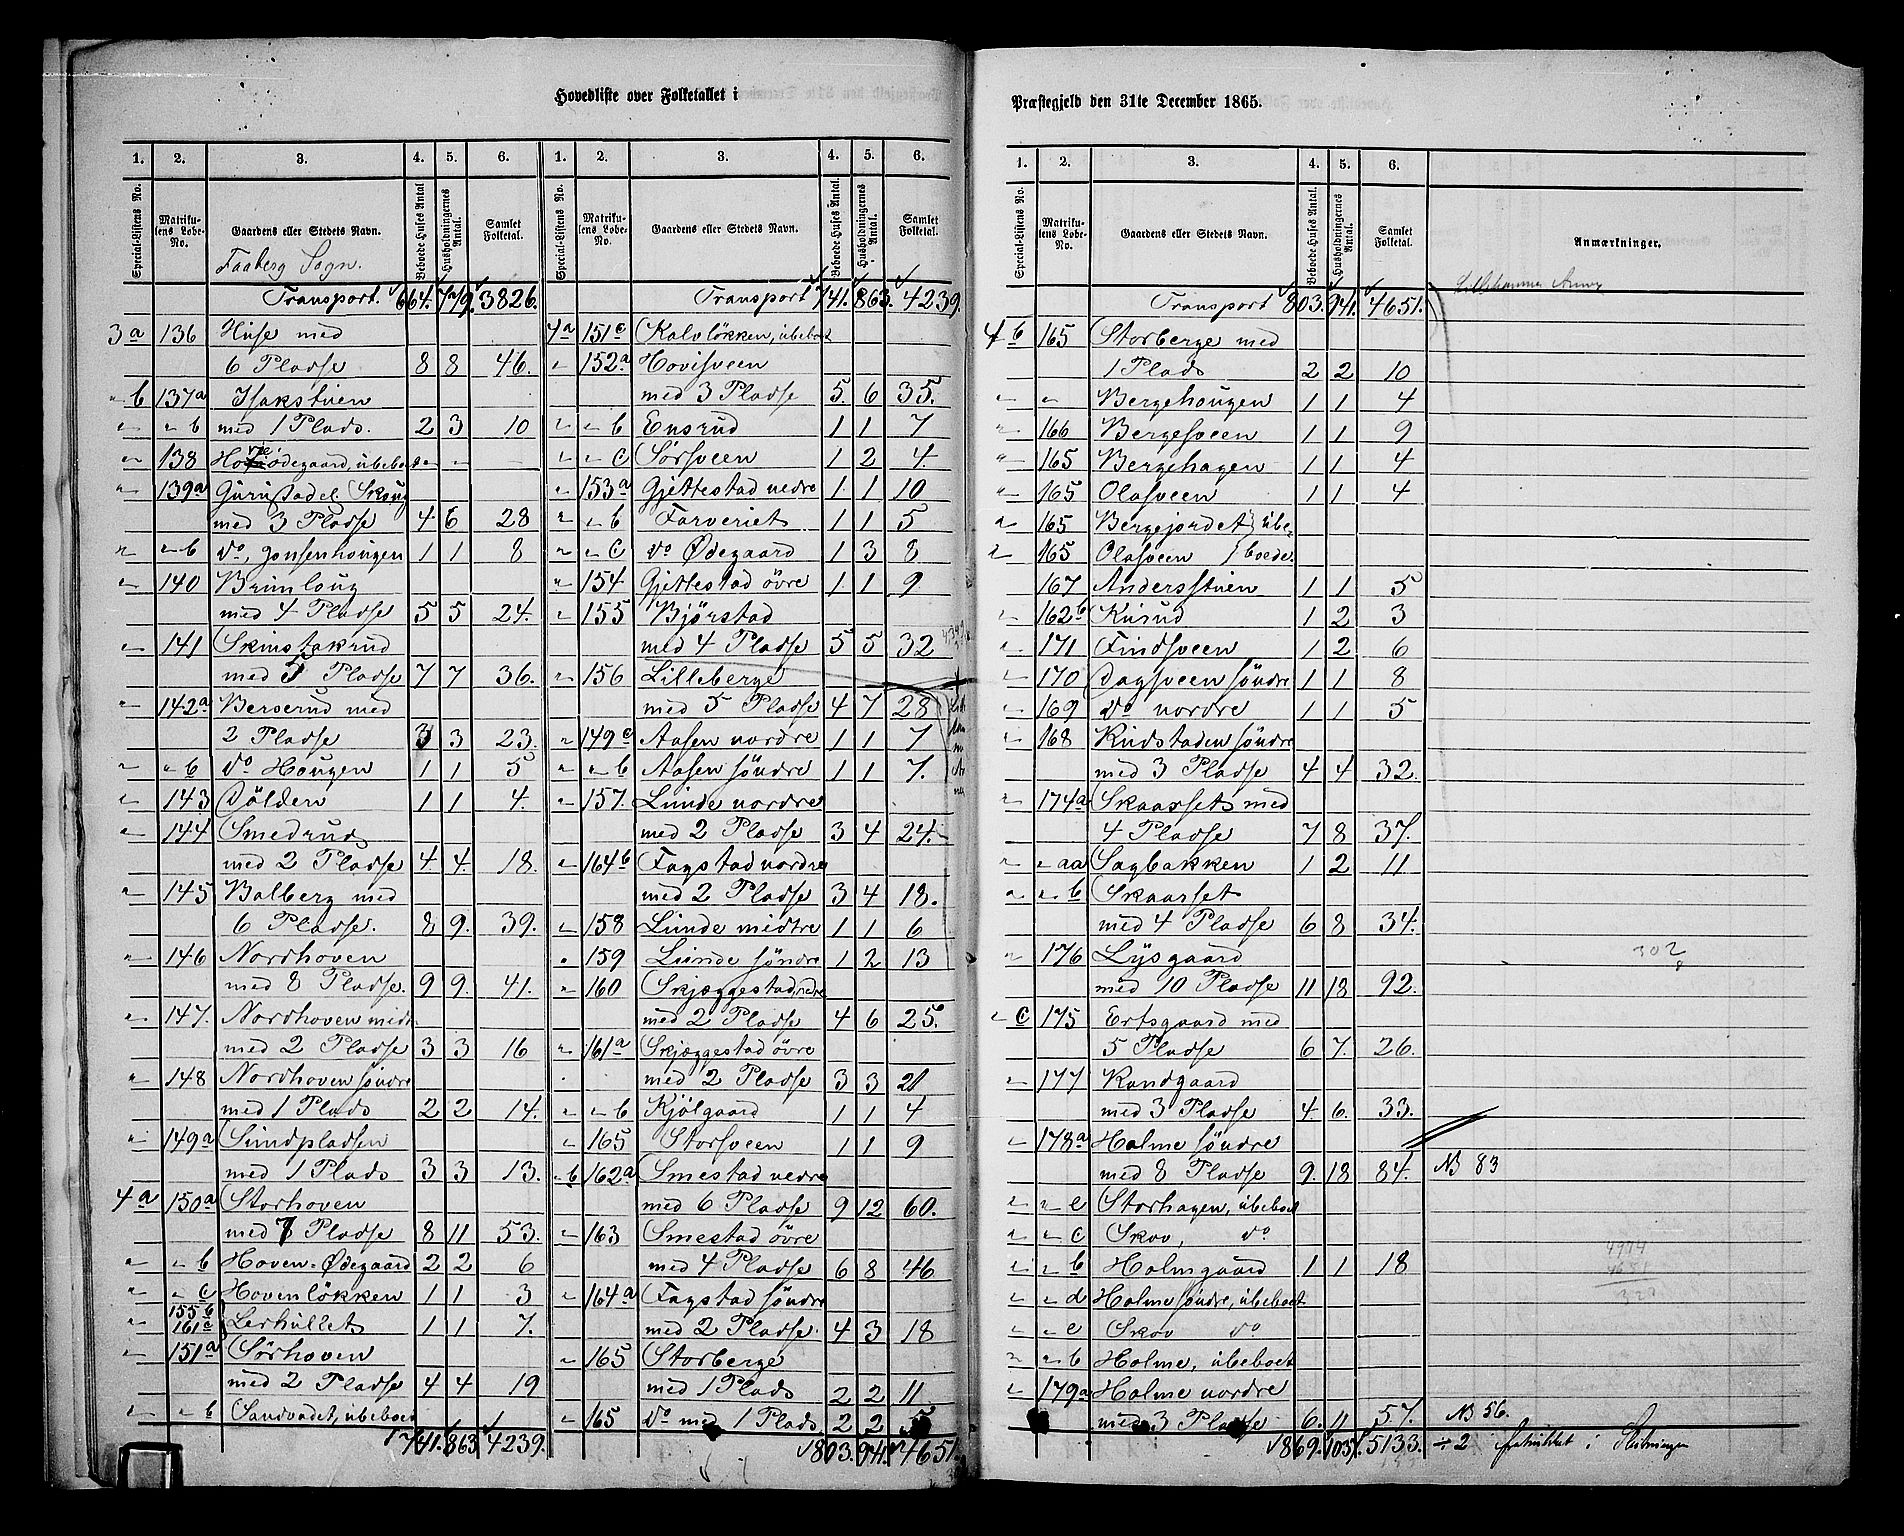 Hovedliste over Folketallet i
1. 2. 3. 4. 5. 6. 1. 2. 3. 4. 5. 6.
Special-Listens No. Matrikulens Løbe-No. Gaardens eller Stedets Navn. Beboede Huses Antal Husholdningernes Antal. Samlet Folketal. Special-Listens No. Matrikulens Løbe-No. Gaardens eller Stedets Navn. Beboede Huses Antal. Husholdningernes Antal. Samlet Folketal.
Faaberg Sogn.
Transport. 664. 3826.
3a 136 Huse med
6 Pladse 8 8 46.
" b 137a Isakstuen
" " b med 1 Plads. 2 3 10
" 138 Ødegaard, ubeboet " "
" 139a Gurustadel. Skoug
med 3 Pladse 4. 6 28
" " b do, Jonsenhougen 1 1 8
" 140 Brunloug
med 4 Pladse 5 5 24.
" 141 Skinstakrud
med 5 Pladse 7 7 36.
" 142a Berserud med
2 Pladse 3 3 23.
" " b do Hougen 1 1 5
" 143 Dölden 1 1 4.
" 144 Smedrud
med 2 Pladse 4. 4. 18.
" 145 Balberg med
6 Pladse. 8 9. 39.
" 146 Nordhoven
med 8 Pladse. 9 9. 41.
" 147. Nordhoven midt.
med 2 Pladse 3 3 16
" 148 Nordhoven söndre
med 1 Plads 2 2 14.
" 149a Sundpladsen
med 1 Plads 3 3 13.
4a 150a Storhoven
med 7 Pladse 8 11 53.
" " b Hoven-Ødegaard 2 2 6
" " c Hovenlökken 1 1 3
" 155b 161c Lerhullet 1 1 7.
" 151a Sörhoven
med 2 Pladse 4 4 19
" " b Sandvadet, ubeboet
741. 863 4239.
Transport 741. 863. 4239.
4a 151c Kalvlökken, ubeboet
" 152a Hovisveen
med 3 Pladse 5. 6 35.
" " b Ensrud 1 1 7
" " c Sörsveen 1 2 4.
" 153a Gjettestad nedre 1 1 10
" " b Farveriet 1 1 5
" " c do Ødegaard 1 3 8
" 154 Gjettestad övre 1 1 9
" 155 Björstad
med 4 Pladse 5 5 32
" 156 Lilleberge
med 5 Pladse 4 7 28
" 149c Aasen nordre 1 1 7
" " b Aasen söndre 1 1 7.
" 157. Lunde nordre
med 2 Pladse 3 4 24.
" 164b Fagstad nordre
med 2 Pladse 3 4 18.
" 158 Lunde midtre 1 1 6
" 159 Lunde söndre 1 2 13
" 160 Skjæggestad nedre
med 2 Pladse 4 6 25.
" 161a Skjæggestad övre
med 2 Pladse 3 3 21
" " b Kjölgaard 1 1 4
" 165 Storsveen 1 1 9
" b 162a Smestad nedre
med 6 Pladse 9 12 60.
" 163 Smestad övre
med 4 Pladse 6 8 46
" 164a Fagstad söndre
med 2 Pladse. 4 3 18
" 165 Storberge
med 1 Plads 2 2 11
" 165 do med 1 Plads 2 2 5
803. 941. 4651.
Præstegjeld den 31te December 1865.
1. 2. 3. 4. 5. 6.
Special-Listens No. Matrikulens Løbe-No. Gaardens eller Stedets Navn. Beboede Huses Antal. Husholdningernes Antal. Samlet Folketal. Anmærkninger.
Transport 803. 941. 4651. Lillehammer Annex
4b 165 Storberge med
1 Plads 2 2 10
" " Bergehougen 1 1 4
" 166 Bergesveen 1 1 9
" 165 Bergehagen 1 1 4
" 165 Olasveen 1 1 4
" 165 Bergejordet } ube-
" 165 Olasveen } boede.
167 Andersstuen 1 1 5
" 162b Kusud 1 2 3
" 171 Findsveen 1 2 6
" 170 Dagsveen söndre 1 1 8
" 169 do nordre 1 1 5
" 168 Rudstaden söndre
med 3 Pladse 4 4 32.
" 174a Skaarset med
4 Pladse 7 8 37.
" " aa Sagbakken 1 2 11
" " b Skaarset
med 4 Pladse 6 8 34.
" 176 Lysgaard
med 10 Pladse 11 18 92.
302
" c 175 Ertsgaard med
5 Pladse 6 7. 26.
" 177 Randgaard
med 3 Pladse 4. 6. 33.
" 178a Holme söndre
med 8 Pladse 9. 18 84. NB 83
" " e Storhagen, ubeboet
" " c Skov, do
" " b Holmgaard 1 1 18
" " d Holme söndre, ubeboet
" " e Skov do
" " b Holme, ubeboet
" 179a Holme nordre
med 3 Pladse 6. 11 57. NB 56.
869. 1051. 5133. ÷ 2